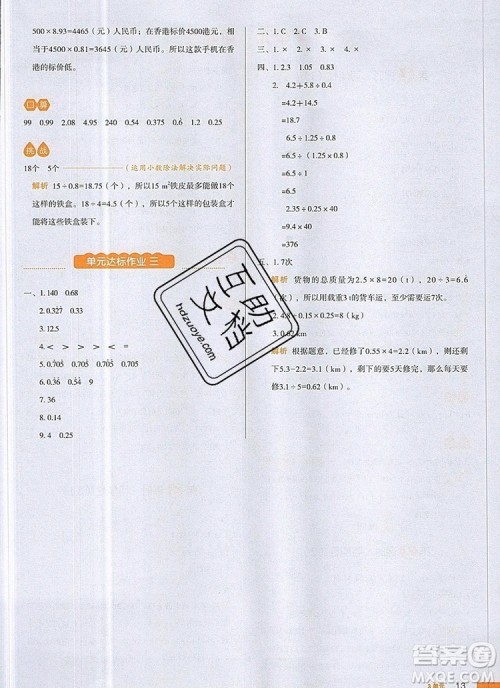 500×8.93=4465（元）人民币；在香港标价4500港元，相
当于4500×0.81=3645（元）人民币。所以这款手机在香
港的标价低。
口算
99 0.99 2.08 4.95 0.24 0.06 1.2 0.25
挑战
18个 5个 （运用小数除法解决实际问题）
解析 15÷0.8=18.75（个），所以15 m²铁皮最多能做18个
这样的铁盒。18÷4=4.5（个），所以5个这样的包装盒才
能将这些铁盒装下。
单元达标作业 三
一、1. 140 0.68
2. 0.327
3. 12.5
4. < > > = >
5. 0.705 0.705 0.705
6. 0.24 0.235
7. 15
8. 0.36
9. 4 0.25
二、1. C 2. C 3. B
三、1. × 2. × 3. × 4. ×
四、1. 2.3 1.05 0.24 0.83
2. 4.2+5.8÷0.4
=4.2+14.5
=18.7
6.5÷(1.25×0.8)
=6.5÷1
=6.5
2.35÷0.25×40
=9.4×40
=376
五、1. 7次
解析 货物的总质量为2.5×8=20（t），20÷3=6.6
（次），所以用载重3 t的货车运，7次能运完。
2. 4.8÷0.15=32（枚）
3. 0.62 km
解析 根据题意，已经修了0.55×4=2.2（km），还剩
下5.3-2.2=3.1（km），剩下的要5天修完，平均每天要
修3.1÷5=0.62（km）。
互助文档
hdzuoye.com
13